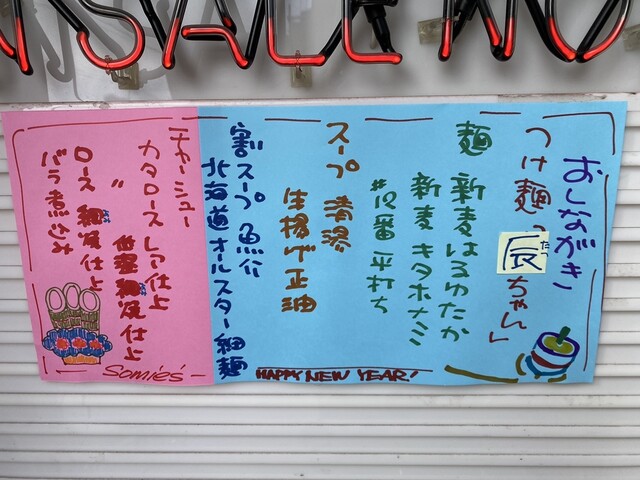 おしながき
つけ麺「辰ちゃん」
たつ
麺 新麦はるゆたか
新麦 キタホナミ
#12番 平打ち
スープ 清湯
生揚げ正油
割スープ 魚介
北海道オールスター細麺
チャーシュー
カタロース レア仕上
〃 低温 仕上
ロース 仕上
バラ煮込み
Somie's
HAPPY NEW YEAR!